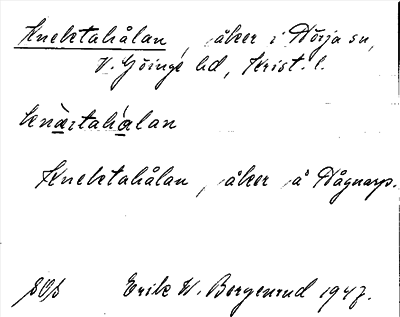 Knektahålan, åker i Nörja sn,
V. Göinge hd, Krist. l.
knæktahålan
Knektahålan, åker å Hågnarp.
Erik W. Bergenrud 1947.